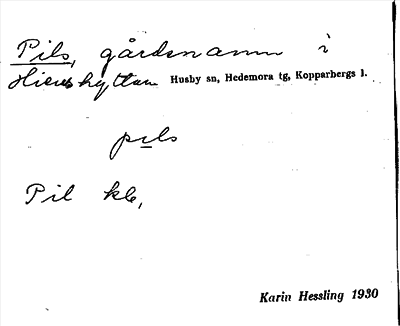 Pils, gårdsnamn i
Husby sn, Hedemora tg, Kopparbergs l.
pils
Pil
Karin Hessling 1930